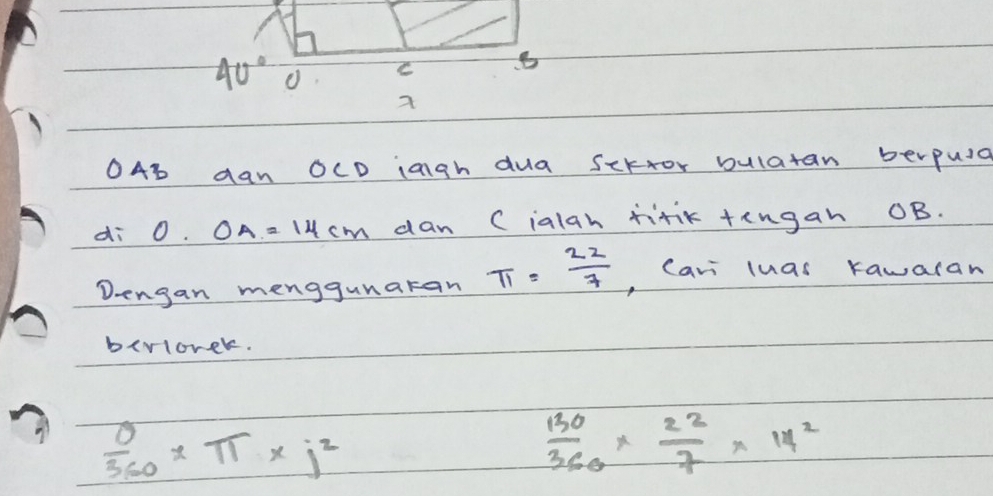 40° O. C B
7
OAB dan OCD ialah dua sektor bulatan berpusa
di O. OA = 14 cm dan C ialah titik tengah OB.
Dengan menggunakan π = 22/7, cari luas kawasan
berlorek.
θ/360 × π × j² 130/360 × 22/7 × 14²